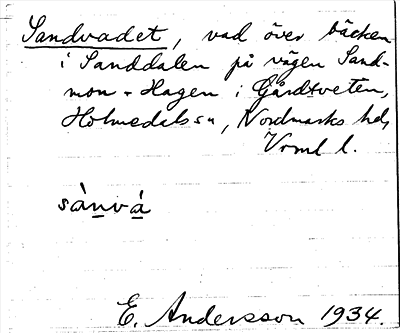 Sandvadet, vad över bäcken
i Sanddalen på vägen Sand-
mon - Hagen i Gårdsveten,
Holmedals sn, Nordmarks hd,
Vrml l.
sànvá
E. Andersson 1934.